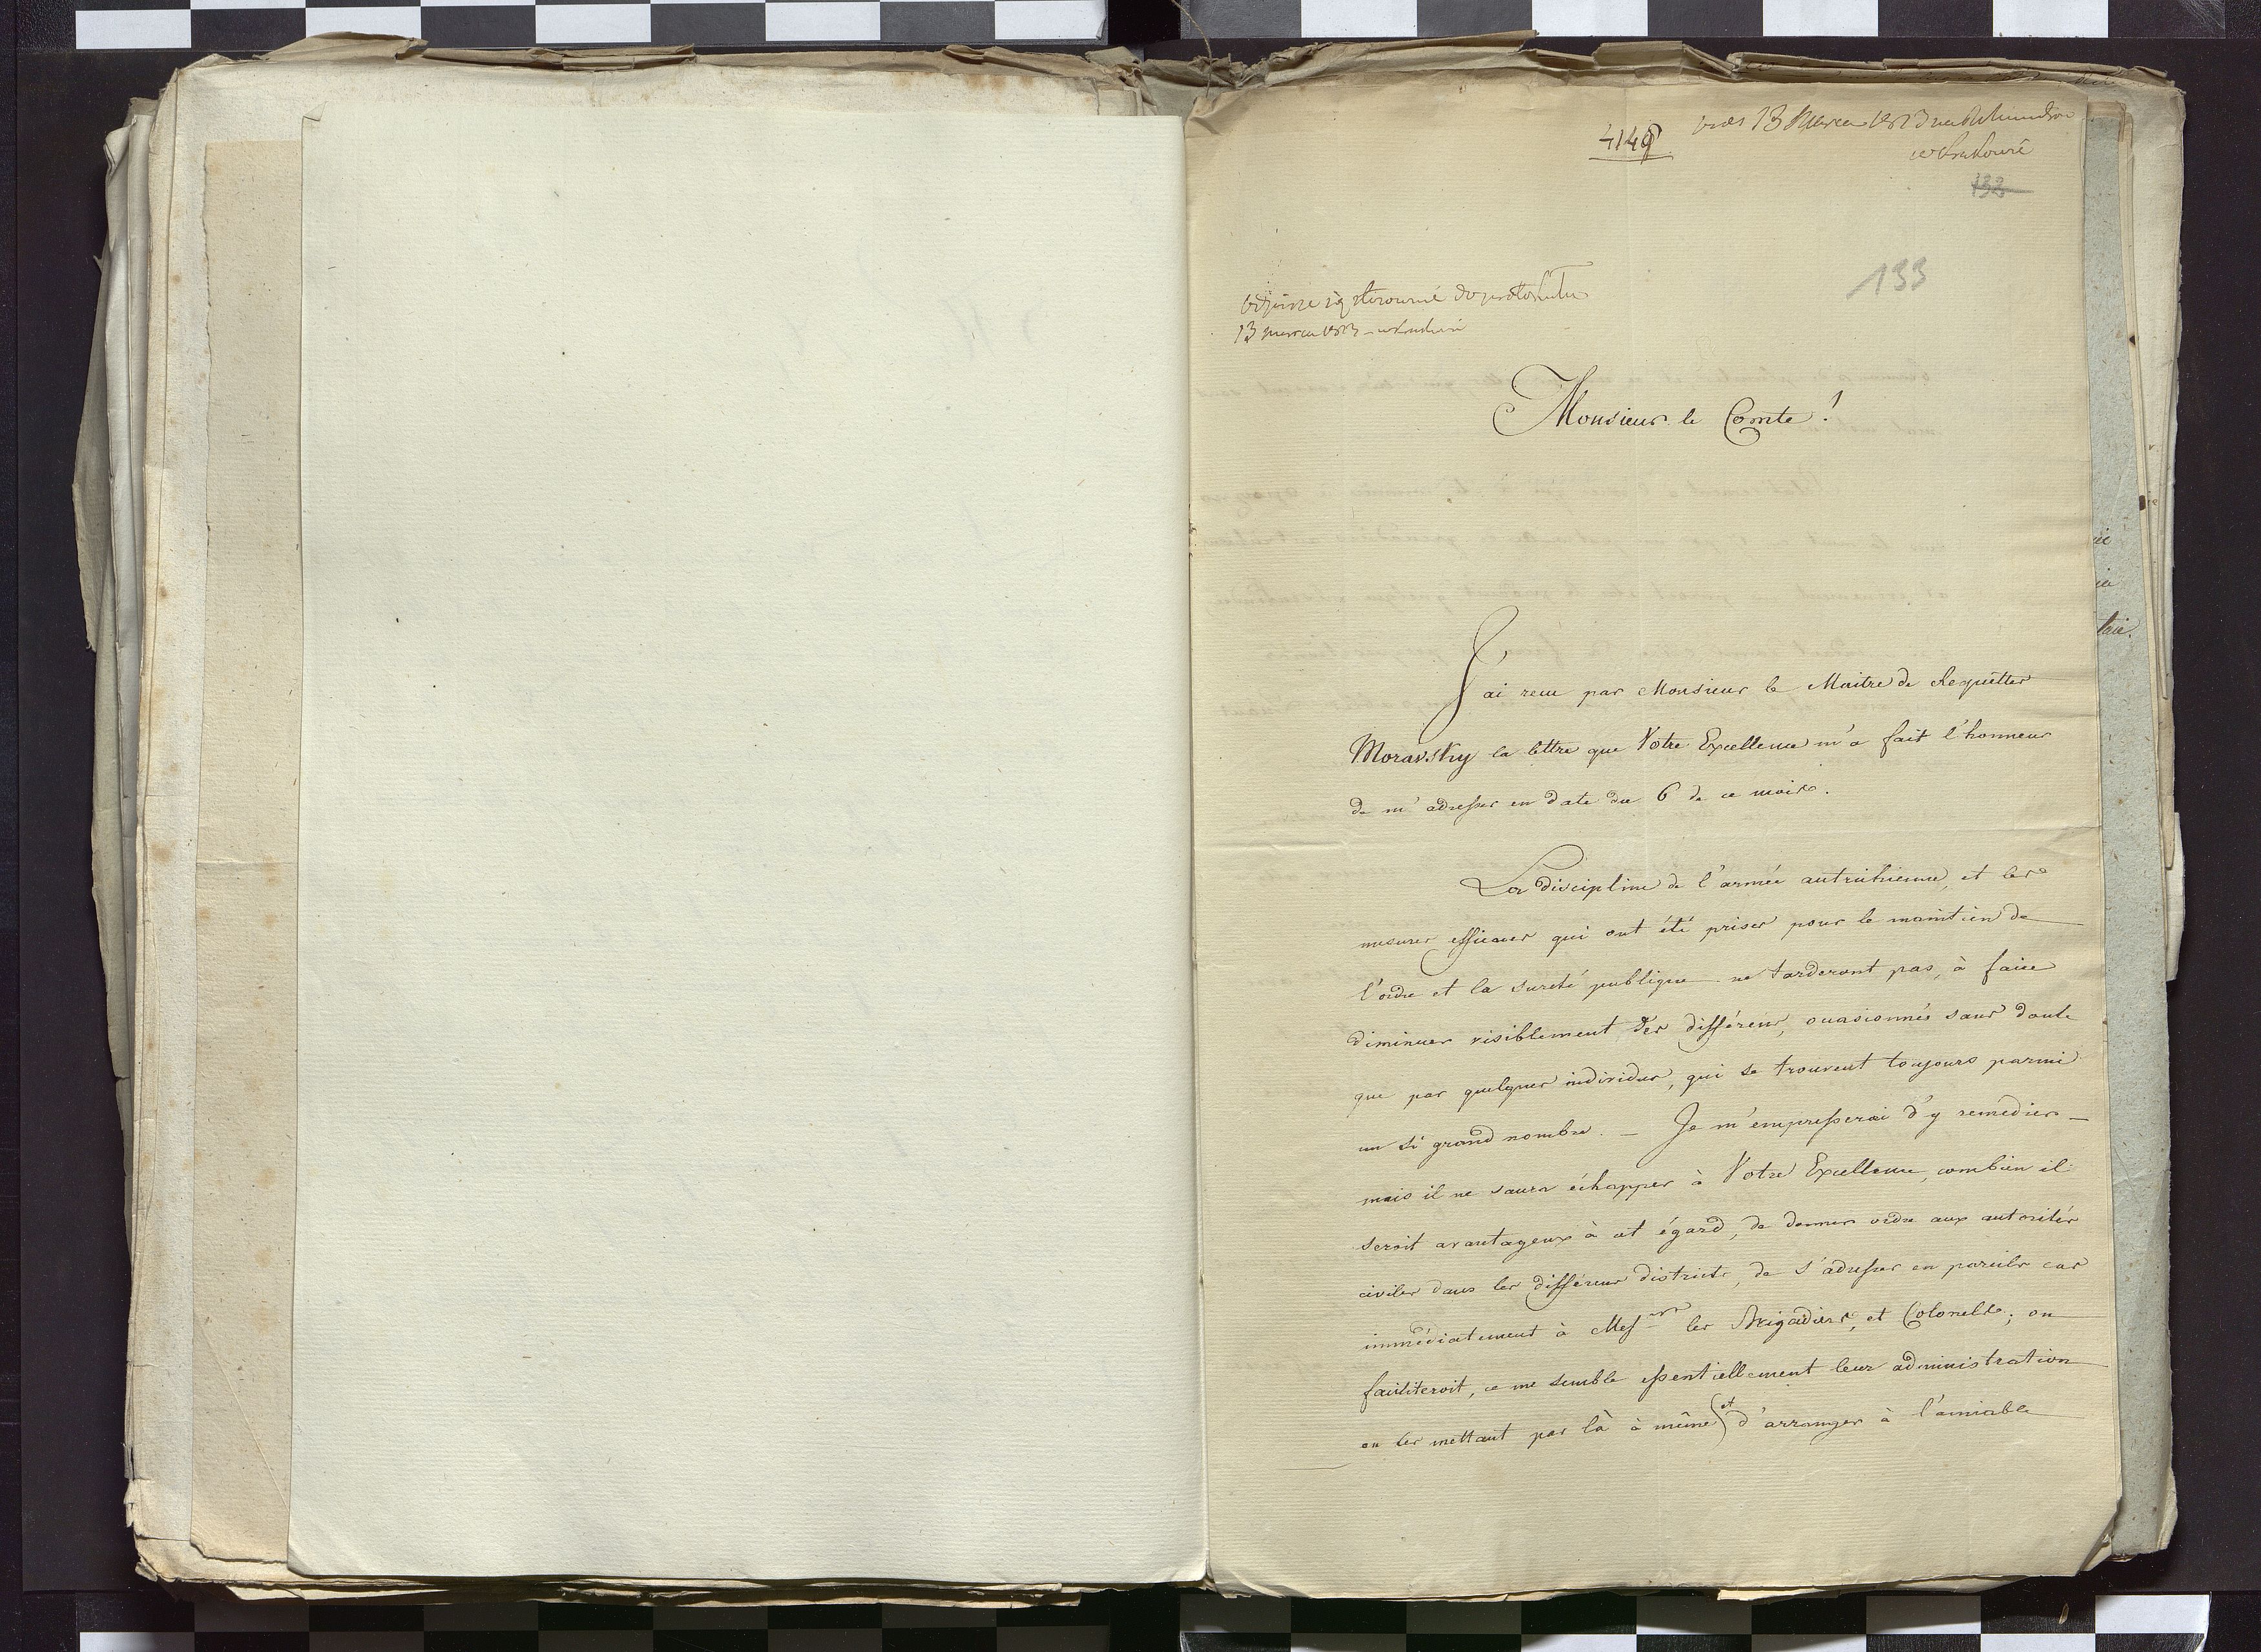 4149
13 Marca 1813
132
133
13 marca 1813
Monsieur le Comte!
J'ai reçu par Monsieur le Maitre de Requêttes
Moravsky la lettre que Votre Excellence m'a fait l'honneur
de m'adresser en date du 6 de ce mois.
La discipline de l'armée autrichienne, et les
mesures efficaces qui ont été prises pour le maintien de
l'ordre et la sureté publique ne tarderont pas, à faire
diminuer visiblement des différens, occasionnés sans doute
que par quelques individus, qui se trouvent toujours parmi
un si grand nombre. — Je m'empresserai d'y remedier —
mais il ne saura échapper à Votre Excellence, combien il
seroit avantageux à cet égard, de donner ordre aux autorités
civiles dans les différens districts, de s'adresser en pareils cas
immédiatement à Messrs les Brigadiers, et Colonells; on
faciliteroit, ce me semble essentiellement leur administration
en les mettant par là à même et d'arranger à l'amiable